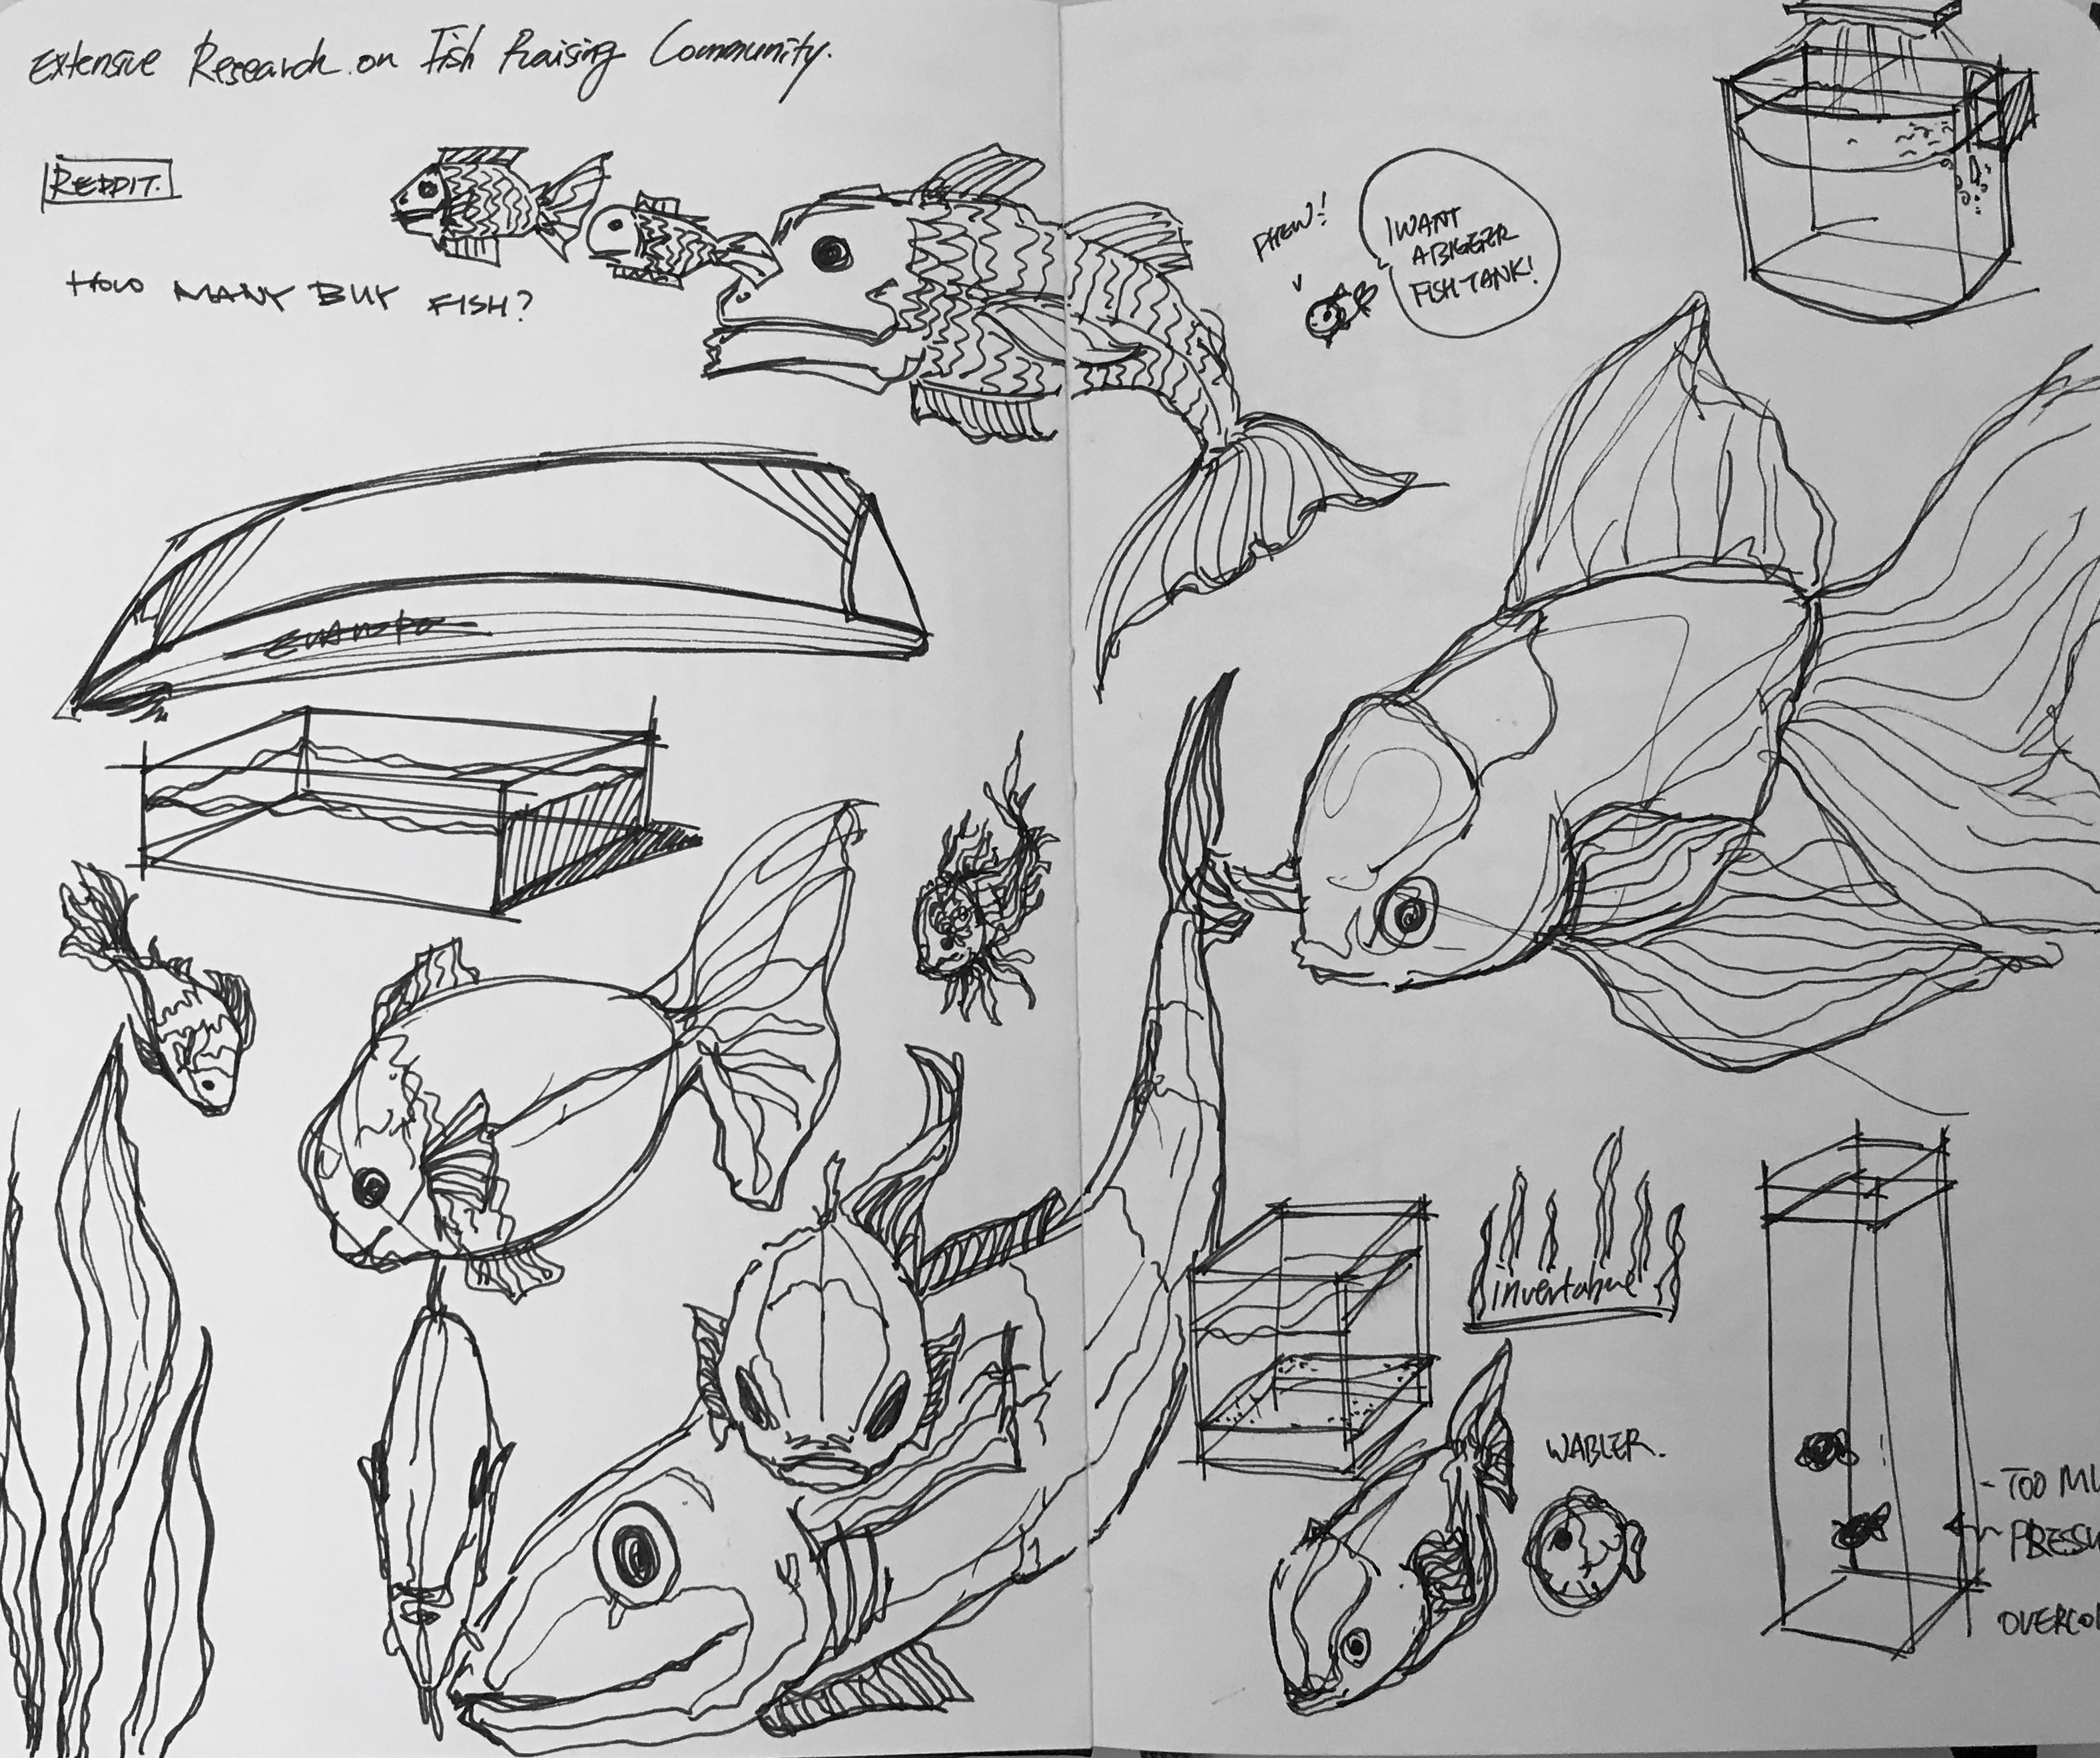 Extensive Research on Fish Raising Community.
REDDIT.
HOW MANY BUY FISH?
PHEW!
I WANT
A BIGGER
FISH TANK!
WABLER.
- TOO MU
PRESSU
OVERCO